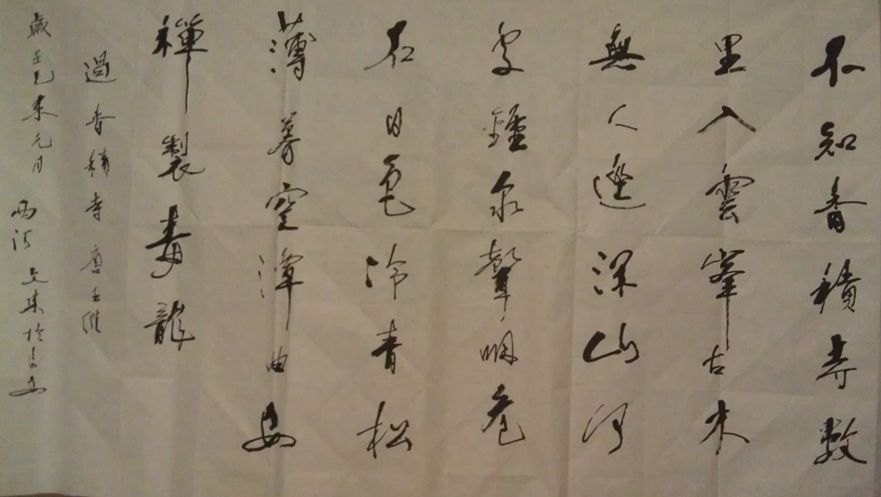 不知香積寺數
里入雲峯古木
無人逕深山何
處鐘泉聲咽危
石日色冷青松
薄暮空潭曲安
禪製毒龍
過香積寺唐王維
歲在乙未元月 西河 於長安